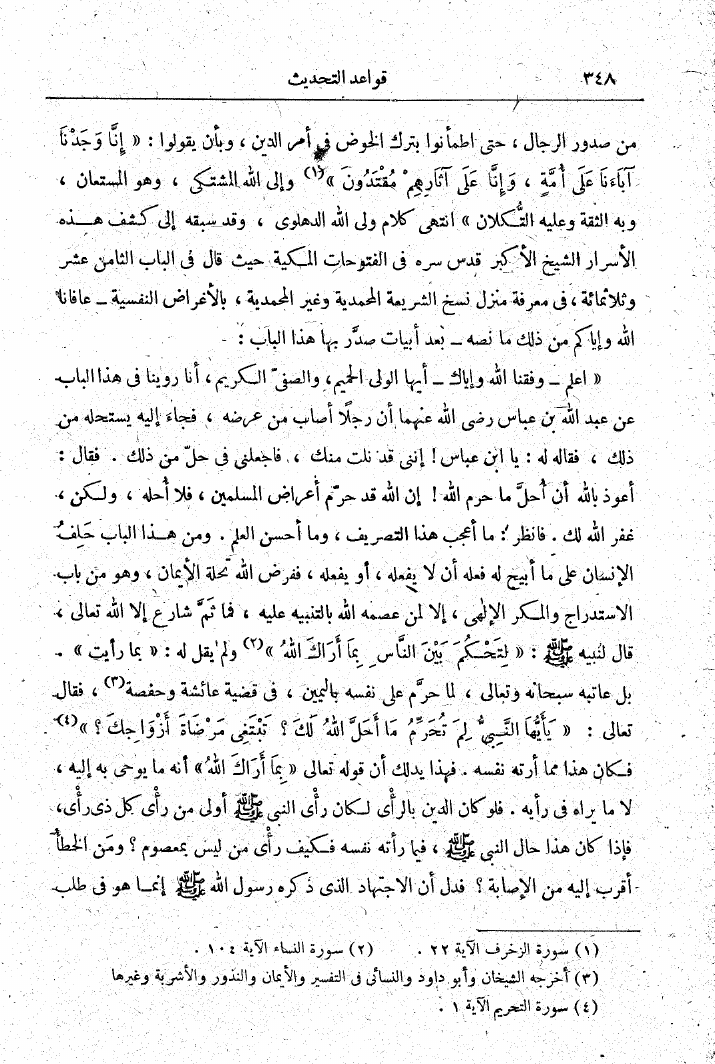 ٣٤٨
قواعد التحديث
من صدور الرجال ، حتى اطمأنوا بترك الخوض في أمر الدين ، وبأن يقولوا : « إِنَّا وَجَدْنَا
آبَاءَنَا عَلَى أُمَّةٍ ، وَإِنَّا عَلَى آثَارِهِمْ مُقْتَدُونَ »(١) وإلى الله المشتكى ، وهو المستعان ،
وبه الثقة وعليه التُّكلان » انتهى كلام ولى الله الدهلوى ، وقد سبقه إلى كشف هذه
الأسرار الشيخ الأكبر قدس سره فى الفتوحات المكية حيث قال فى الباب الثامن عشر
وثلاثمائة ، فى معرفة منزل نسخ الشريعة المحمدية وغير المحمدية ، بالأغراض النفسية ــ عافانا
الله وإياكم من ذلك ما نصه ــ بعد أبيات صدَّر بها هذا الباب :
« اعلم ــ وفقنا الله وإياك ــ أيها الولى الحميم ، والصفىّ الكريم ، أنا روينا فى هذا الباب
عن عبد الله بن عباس رضى الله عنهما أن رجلًا أصاب من عرضه ، فجاء إليه يستحله من
ذلك ، فقاله له : يا ابن عباس ! إننى قد نلت منك ، فاجعلنى فى حلّ من ذلك . فقال :
أعوذ بالله أن أُحلَّ ما حرم الله ! إن الله قد حرّم أعراض المسلمين ، فلا أُحله ، ولكن ،
غفر الله لك . فانظر : ما أعجب هذا التصريف ، وما أحسن العلم . ومن هذا الباب حَلِفُ
الإنسان على ما أبيح له فعله أن لا يفعله ، أو يفعله ، ففرض الله تحلة الأيمان ، وهو من باب
الاستدراج والمكر الإلٰهى ، إلا لمن عصمه الله بالتنبيه عليه ، فما ثمَّ شارع إلا الله تعالى ،
قال لنبيه ﷺ : « لِتَحْكُمَ بَيْنَ النَّاسِ بِمَا أَرَاكَ اللهُ »(٢) ولم يقل له : « بما رأيت » .
بل عاتبه سبحانه وتعالى ، لما حرَّم على نفسه باليمين ، فى قضية عائشة وحفصة(٣) ، فقال
تعالى : « يَأَيُّهَا النَّبِيُّ لِمَ تُحَرِّمُ مَا أَحَلَّ اللهُ لَكَ ؟ تَبْتَغِى مَرْضَاةَ أَزْوَاجِكَ ؟ »(٤)
فكان هذا مما أرته نفسه . فهذا يدلك أن قوله تعالى « بِمَا أَرَاكَ اللهُ » أنه ما يوحى به إليه ،
لا ما يراه فى رأيه . فلو كان الدين بالرأى لكان رأى النبى ﷺ أولى من رأى كل ذى رأى ،
فإذا كان هذا حال النبى ﷺ ، فيما رأته نفسه فكيف رأى من ليس بمعصوم ؟ ومَن الخطأ
أقرب إليه من الإصابة ؟ فدل أن الاجتهاد الذى ذكره رسول الله ﷺ إنما هو فى طلب
(١) سورة الزخرف الآية ٢٢ . (٢) سورة النساء الآية ١٠٤ .
(٣) أخرجه الشيخان وأبو داود والنسائى فى التفسير والأيمان والنذور والأشربة وغيرها
(٤) سورة التحريم الآية ١ .